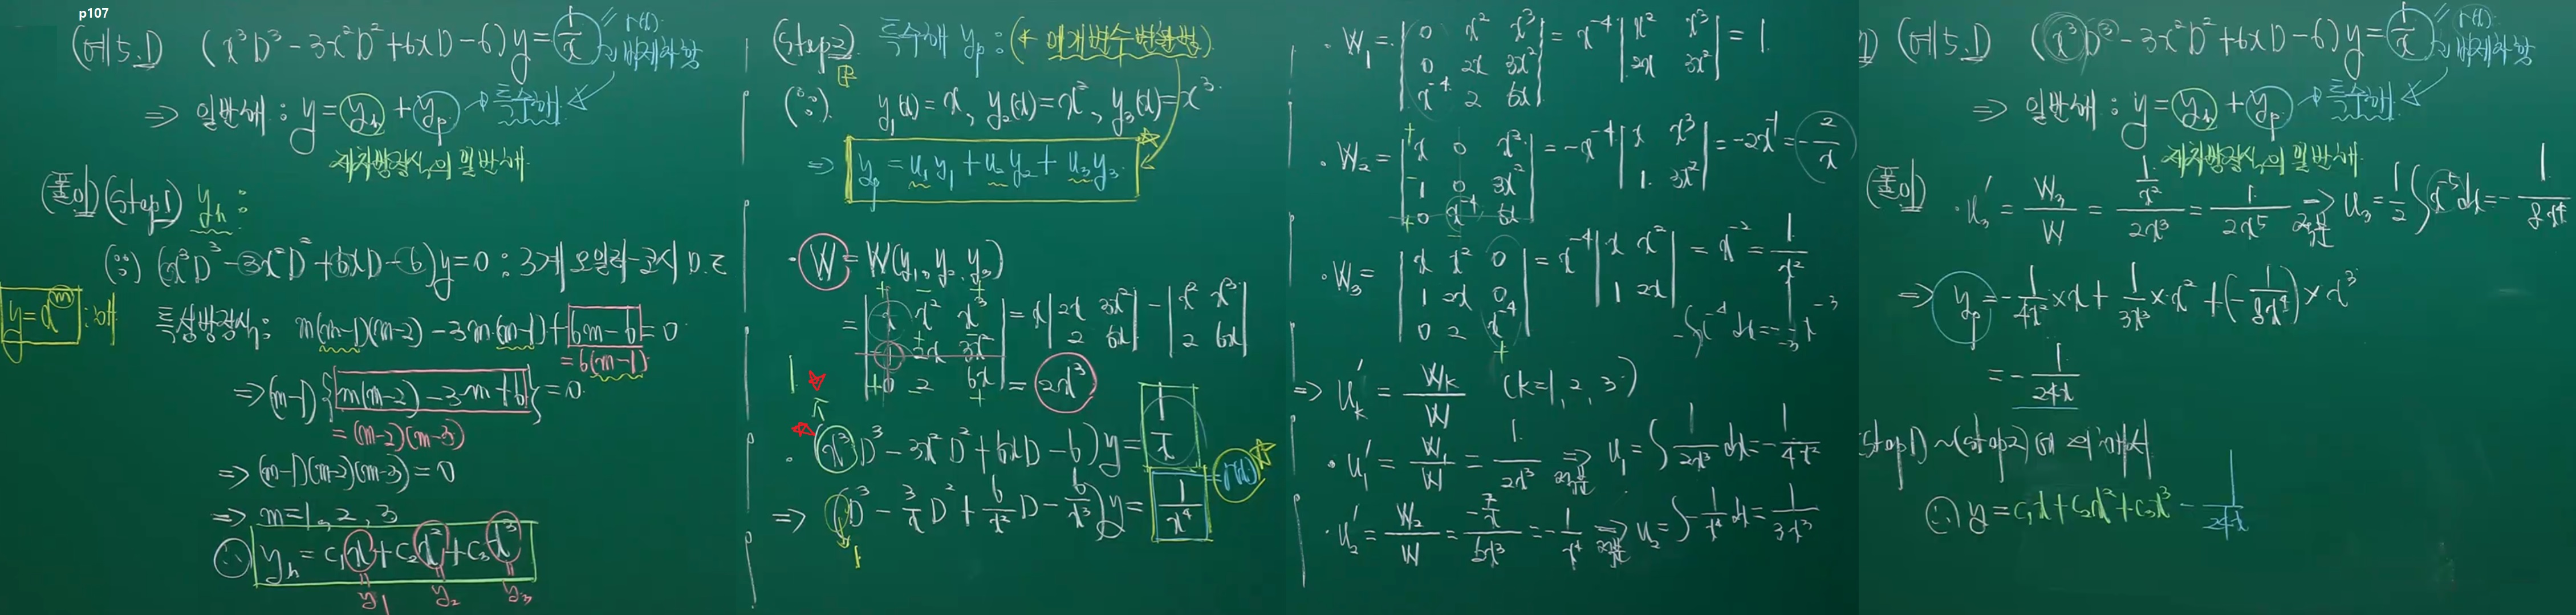 p107
(예5.D) (x³D³-3x²D²+6xD-6)y=1/x " r(x)
⇒ 일반해: y=y_h+y_p → 특수해
제차방정식의 일반해
(풀이)(step1) y_h:
(∵) (x³D³-3x²D²+6xD-6)y=0 : 3계 오일러-코시 D.E
y=x^m : 해
특성방정식: m(m-1)(m-2)-3m(m-1)+6m-6=0
=6(m-1)
⇒(m-1){m(m-2)-3m+6}=0
=(m-2)(m-3)
⇒(m-1)(m-2)(m-3)=0
⇒ m=1, 2, 3
∴ y_h=c₁x+c₂x²+c₃x³
y₁ y₂ y₃
(step2) 특수해 y_p: (* 매개변수변환법)
(∵) y₁(x)=x, y₂(x)=x², y₃(x)=x³
⇒ y_p=u₁y₁+u₂y₂+u₃y₃
· W=W(y₁, y₂, y₃)
=|x x² x³; 1 2x 3x²; 0 2 6x|=x|2x 3x²; 2 6x|-|x² x³; 2 6x|
=2x³
· (x³D³-3x²D²+6xD-6)y=1/x
⇒ (D³-3/x D²+6/x² D-6/x³)y=1/x⁴ =r(x)
· W₁=|0 x² x³; 0 2x 3x²; x⁻⁴ 2 6x|=x⁻⁴|x² x³; 2x 3x²|=1
· W₂=|x 0 x³; 1 0 3x²; 0 x⁻⁴ 6x|=-x⁻⁴|x x³; 1 3x²|=-2x⁻¹=-2/x
· W₃=|x x² 0; 1 2x 0; 0 2 x⁻⁴|=x⁻⁴|x x²; 1 2x|=x⁻²=1/x²
-∫x⁻⁴dx=-1/-3 x⁻³
⇒ u'_k=W_k/W (k=1, 2, 3)
· u₁'=W₁/W=1/2x³ ⇒ u₁=∫1/2x³ dx=-1/4x²
· u₂'=W₂/W=(-2/x)/2x³=-1/x⁴ ⇒ u₂=∫-1/x⁴ dx=1/3x³
(예5.D) (x³D³-3x²D²+6xD-6)y=1/x " r(x)
⇒ 일반해: y=y_h+y_p → 특수해
제차방정식의 일반해
(풀이) · u₃'=W₃/W=(1/x²)/2x³=1/2x⁵ ⇒ u₃=1/2∫x⁻⁵dx=-1/8x⁴
⇒ y_p=-1/4x²×x+1/3x³×x²+(-1/8x⁴)×x³
=-1/24x
step1)~(step2)에 의하여
∴ y=c₁x+c₂x²+c₃x³-1/24x